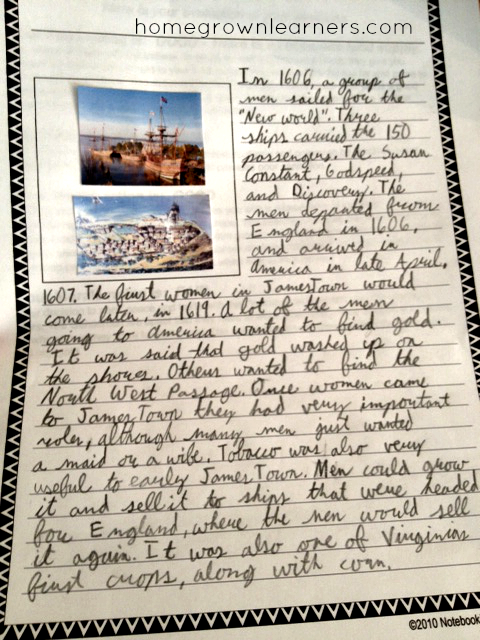 homegrownlearners.com
In 1606, a group of
men sailed for the
"New world". Three
ships carried the 150
passengers. The Susan
Constant, Godspeed,
and Discovery. The
men departed from
England in 1606,
and arrived in
america in late April,
1607. The first women in JamesTown would
come later, in 1619. A lot of the men
going to america wanted to find gold.
It was said that gold washed up on
the shores. Others wanted to find the
North West Passage. Once women came
to JamesTown they had very important
roles, although many men just wanted
a maid or a wife. Tobacco was also very
useful to early JamesTown. Men could grow
it and sell it to ships that were headed
for England, where the men would sell
it again. It was also one of Virginias
first crops, along with corn.
©2010 Notebook